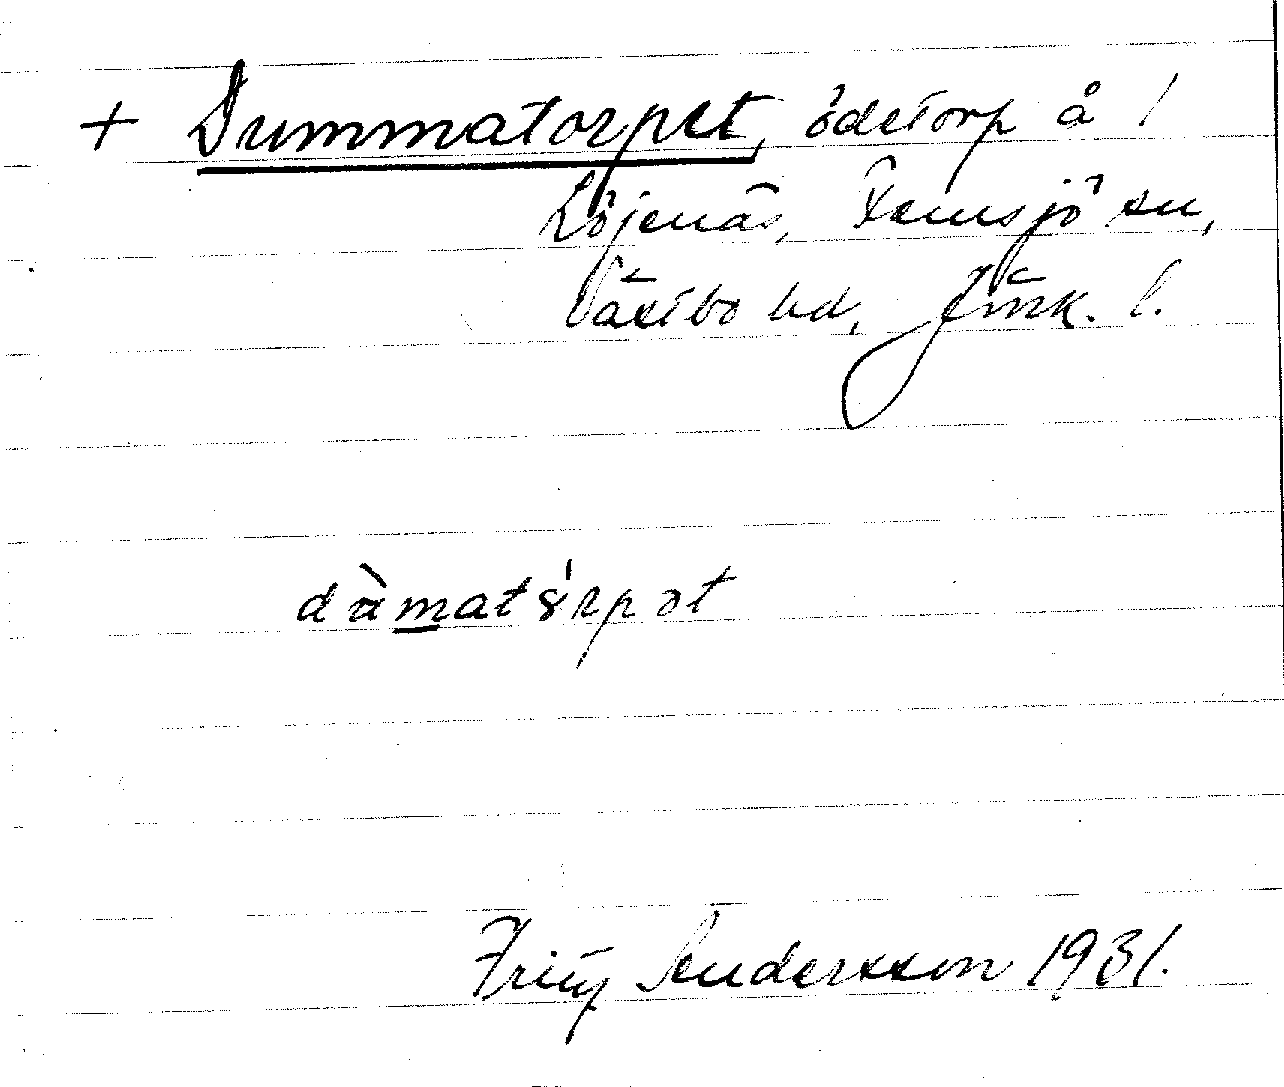 + Dummatorpet, ödetorp å /
Löjenäs, Femsjö sn,
Västbo hd, Jönk. l.
dàmatórpət
Fritz Andersson 1931.